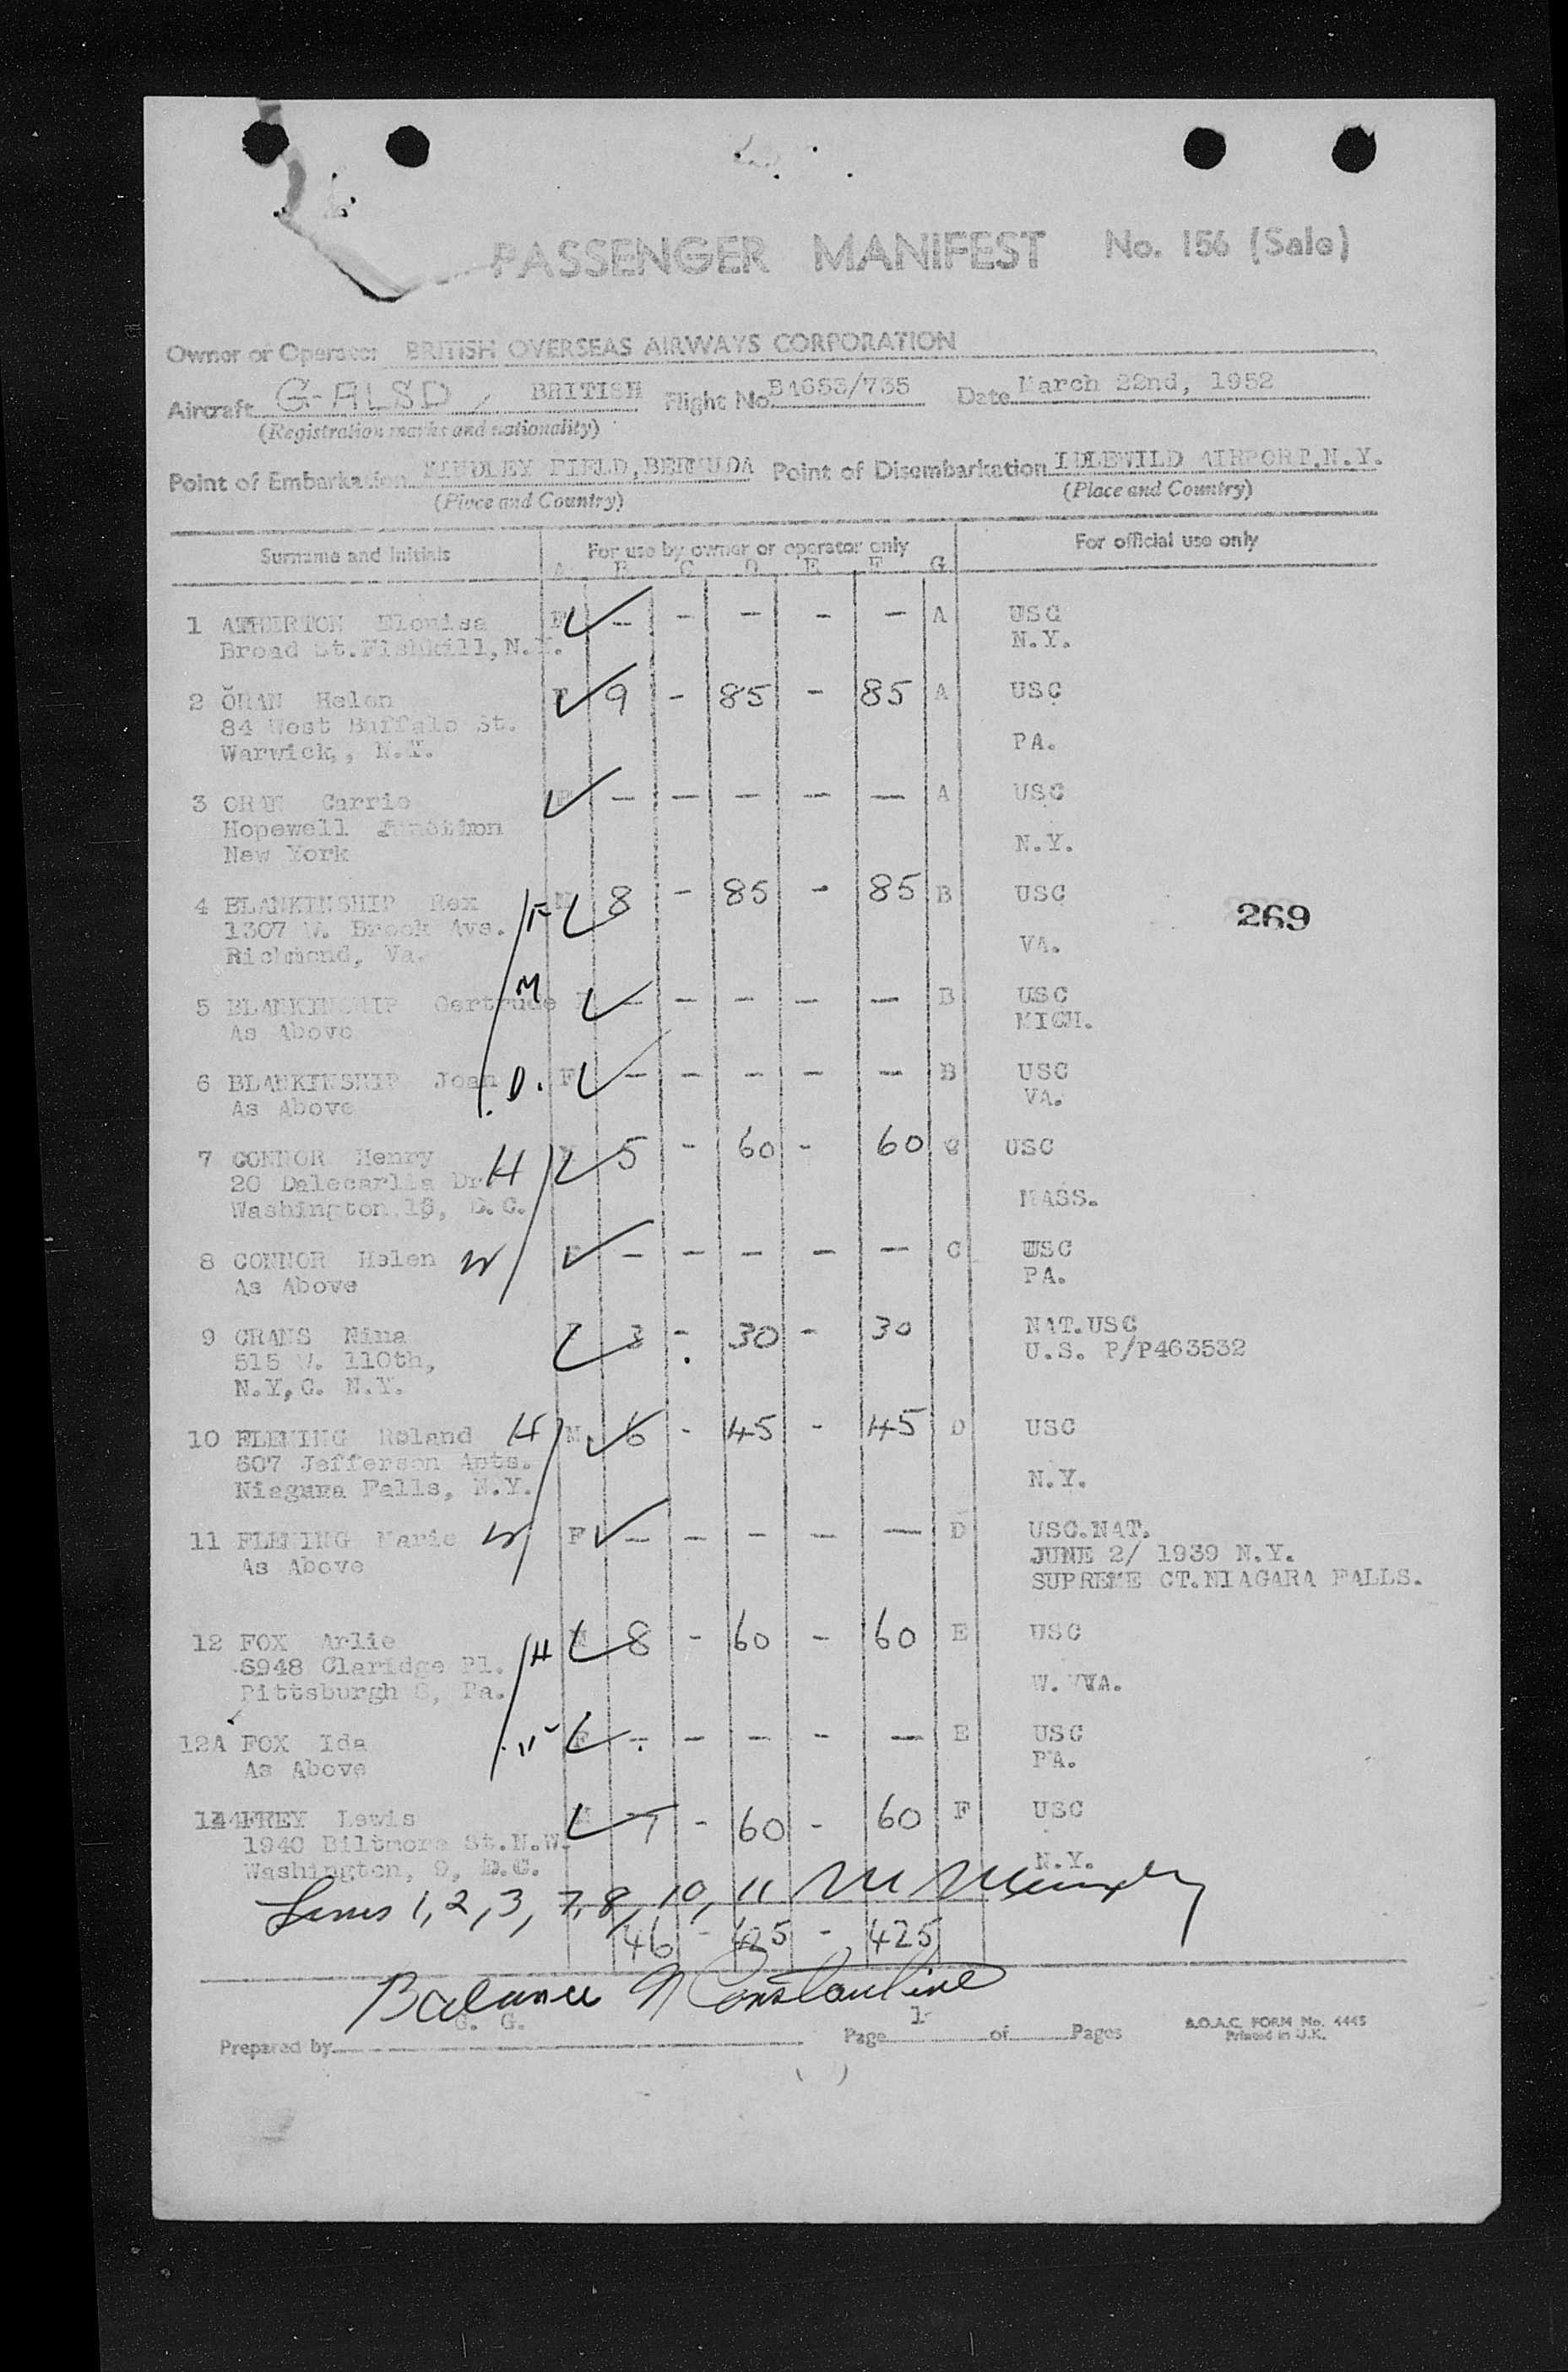 PASSENGER MANIFEST No. 156 (Sale)
Owner or Operator BRITISH OVERSEAS AIRWAYS CORPORATION
Aircraft G-ALSD, BRITISH Flight No B4653/735 Date March 22nd, 1952
(Registration marks and nationality)
Point of Embarkation KINDLEY FIELD, BERMUDA Point of Disembarkation IDLEWILD AIRPORT, N.Y.
(Place and Country) (Place and Country)
Surname and Initials For use by owner or operator only For official use only
A B C D E F G
1 ATHERTON Elouisa F ✓ - - - - - A USC
Broad St. Fishkill, N.Y. N.Y.
2 ORAN Helen F ✓ 9 - 85 - 85 A USC
84 West Buffalo St.
Warwick,, N.Y. PA.
3 ORAN Carrie F ✓ - - - - - A USC
Hopewell Junction
New York N.Y.
4 BLANKINSHIP Rex F M ✓ 8 - 85 - 85 B USC
1307 W. Brook Ave.
Richmond, Va. VA.
269
5 BLANKINSHIP Gertrude M F ✓ - - - - - B USC
As Above MICH.
6 BLANKINSHIP Joan D. F ✓ - - - - - B USC
As Above VA.
7 CONNOR Henry H M ✓ 5 - 60 - 60 C USC
20 Dalecarlia Dr
Washington 16, D.C. MASS.
8 CONNOR Helen W F ✓ - - - - - C USC
As Above PA.
9 CRANS Nina F ✓ 3 - 30 - 30 NAT.USC
515 W. 110th, U.S. P/P463532
N.Y,C. N.Y.
10 FLEMING Roland H M ✓ 6 - 45 - 45 D USC
607 Jefferson Apts.
Niagara Falls, N.Y. N.Y.
11 FLEMING Marie W F ✓ - - - - - D USC.NAT.
As Above JUNE 2/ 1939 N.Y.
SUPREME CT.NIAGARA FALLS.
12 FOX Arlie H M ✓ 8 - 60 - 60 E USC
6948 Claridge Pl.
Pittsburgh 8, Pa. W. VA.
12A FOX Ida W F ✓ - - - - - E USC
As Above PA.
14 FREY Lewis M ✓ 7 - 60 - 60 F USC
1940 Biltmore St.N.W.
Washington, 9, D.C. N.Y.
Lines 1, 2, 3, 7, 8, 10, 11
46 - 425 - 425
Balance N Constantine
G. G.
Prepared by Page 1 of Pages B.O.A.C. FORM No. 4445
Printed in U.K.